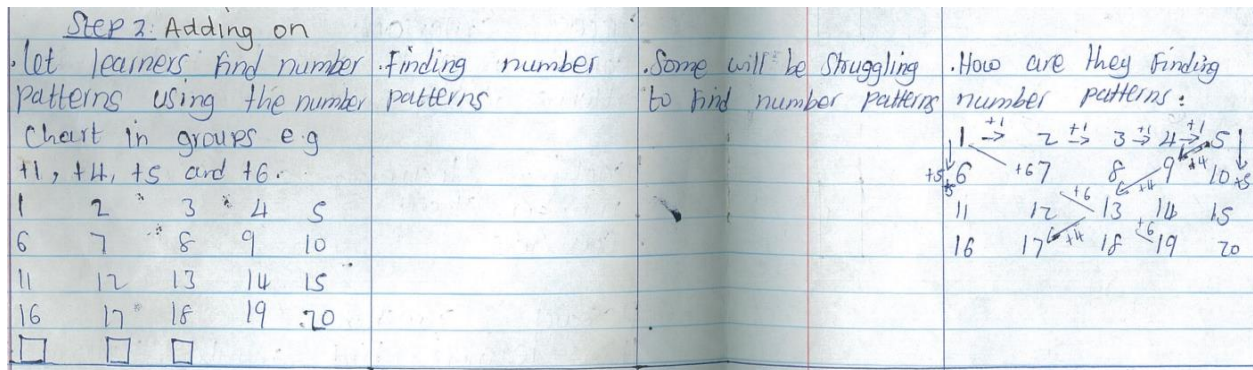 Step 2: Adding on
. let learners find number
patterns using the number
Chart in groups e.g
+1, +4, +5 and +6.
1 2 3 4 5
6 7 8 9 10
11 12 13 14 15
16 17 18 19 20
. Finding number
patterns
. Some will be Struggling
to find number patterns
. How are they Finding
number patterns:
1 +1 2 +1 3 +1 4 +1 5
+5 6 +6 7 8 9 +4 10 +5
+5 +6 +4
11 12 13 14 15
+4 +6
16 17 18 19 20